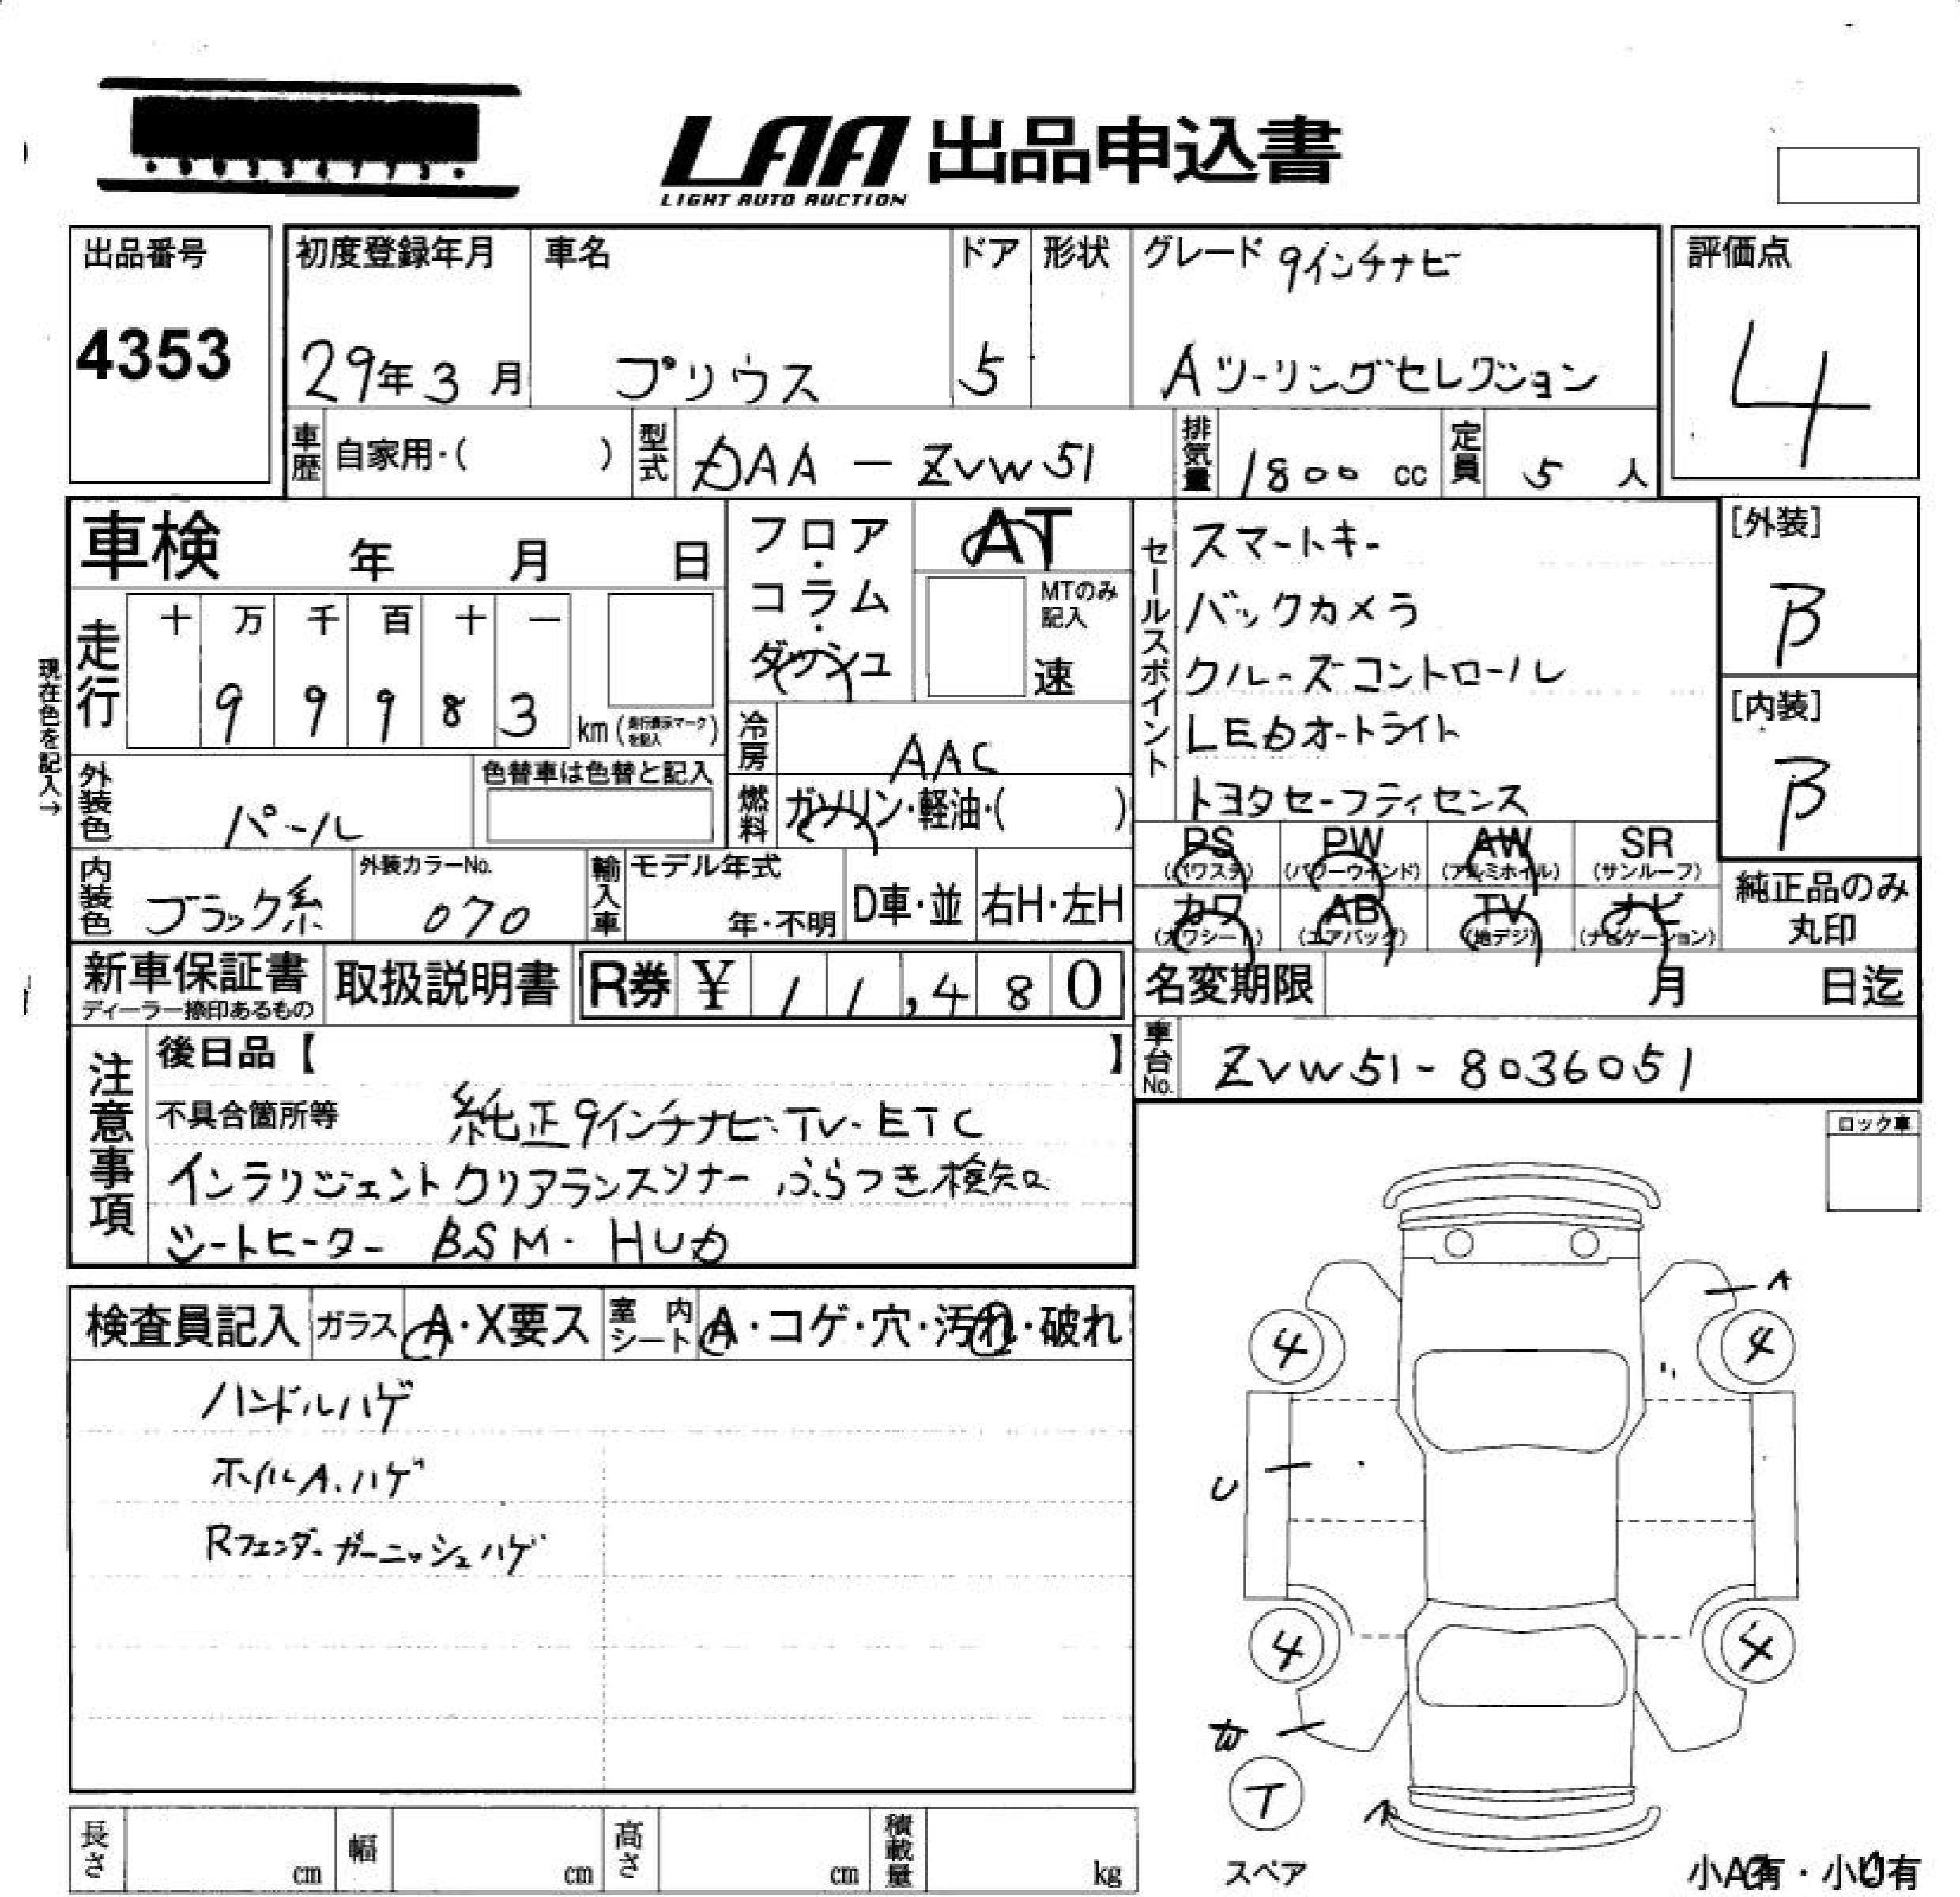 LAA 出品申込書
LIGHT AUTO AUCTION
出品番号
4353
初度登録年月
29年3月
車名
プリウス
ドア
5
形状
グレード 9インチナビ
Aツーリングセレクション
評価点
4
車歴 自家用・( )
型式 DAA-ZVW51
排気量 1800 cc
定員 5 人
車検 年 月 日
走行
十 万 千 百 十 一
9 9 9 8 3 km (走行表示マークを記入)
現在色を記入→
フロア・コラム・ダッシュ
AT
MTのみ記入
速
冷房 AAC
燃料 ガソリン・軽油・( )
セールスポイント
スマートキー
バックカメラ
クルーズコントロール
LEDオートライト
トヨタセーフティセンス
[外装]
B
[内装]
B
外装色 パール
色替車は色替と記入
内装色 ブラック系
外装カラーNo.
070
輸入車 モデル年式
年・不明
D車・並
右H・左H
PS (パワステ)
PW (パワーウインド)
AW (アルミホイル)
SR (サンルーフ)
カワ (カワシート)
AB (エアバッグ)
TV (地デジ)
ナビ (ナビゲーション)
純正品のみ
丸印
新車保証書
ディーラー捺印あるもの
取扱説明書
R券 ¥ 11,480
名変期限 月 日迄
車台No. ZVW51-8036051
注意事項
後日品【 】
不具合箇所等 純正9インチナビ・TV・ETC
インテリジェントクリアランスソナー ふらつき検知
シートヒーター BSM・HUD
ロック車
検査員記入
ガラス A・X要ス
室内シート A・コゲ・穴・汚れ・破れ
ハンドルハゲ
ホイルA.ハゲ
Rフェンダーガーニッシュハゲ
A
4
4
U
4
4
W
T
スペア
A
小A有・小U有
長さ cm
幅 cm
高さ cm
積載量 kg